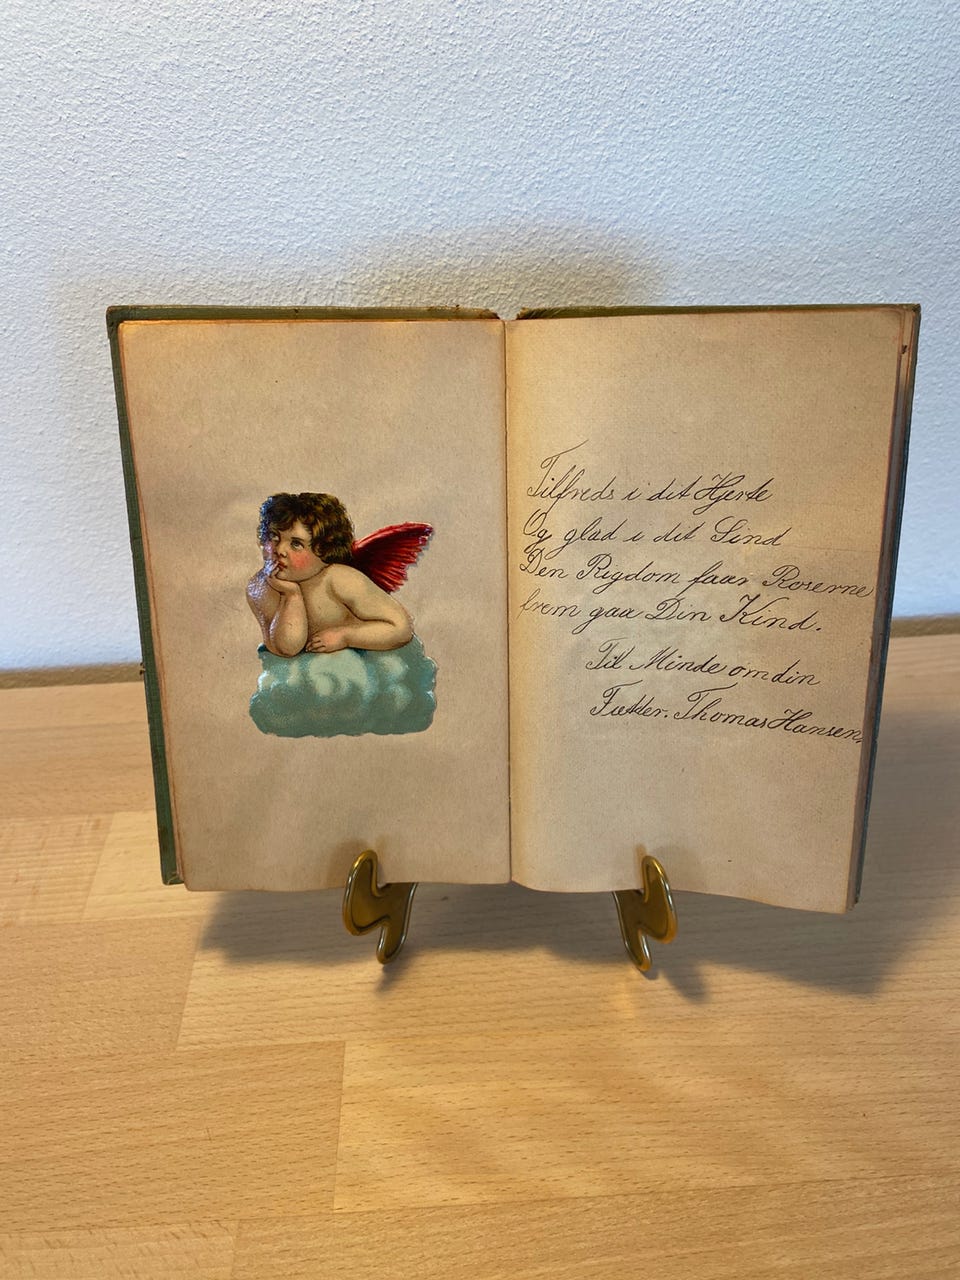 Tilfreds i dit Hjerte
Og glad i dit Sind
Den Rigdom faar Roserne
frem paa Din Kind.
Til Minde om din
Fætter. Thomas Hansen.